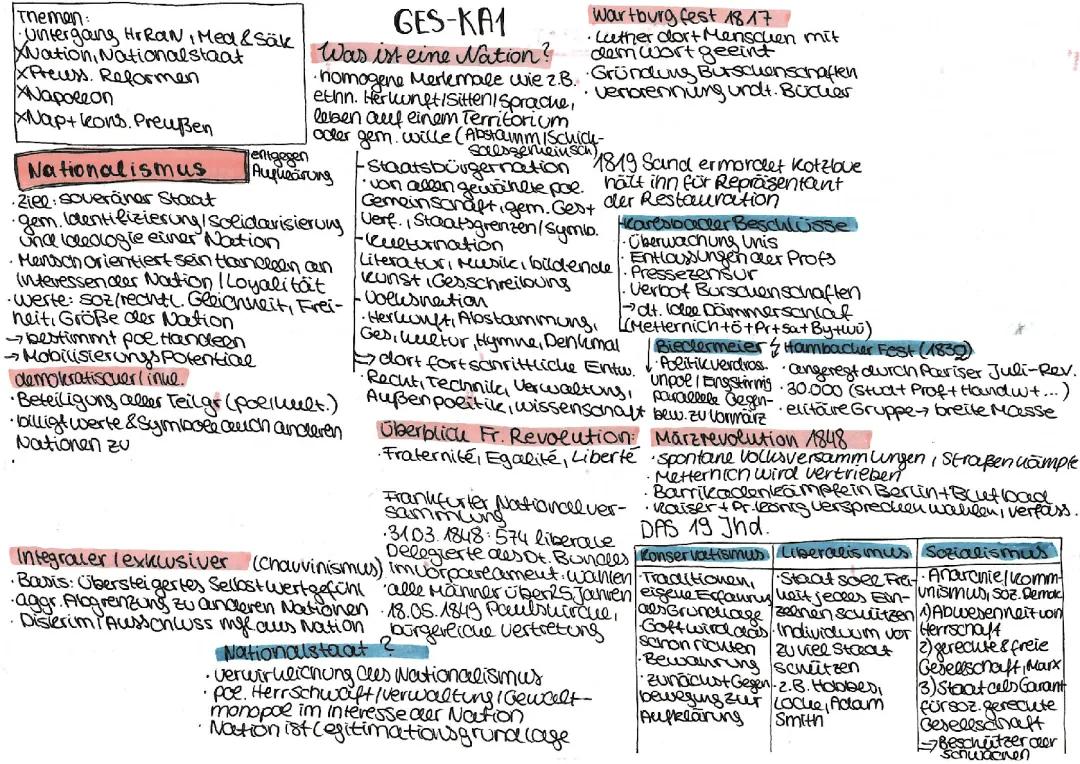 Themen:
· Untergang HrRdN, Med & Säk
XNation, Nationalstaat
XPreuss. Reformen
XNapoleon
XNap + kons. Preußen
GES-KA1
Was ist eine Nation?
· homogene Merkmale wie z.B.
ethn. Herkunft/Sitten/Sprache,
leben auf einem Territorium
oder gem. Wille (Abstamm/Schick-
salsgemeinsch)
- Staatsbürgernation
· von allen gewählte pol.
Gemeinschaft, gem. Ges +
Verf., Staatsgrenzen/Symb.
- Kulturnation
Literatur, Musik, bildende
Kunst, Gesschreibung
- Volksnation
· Herkunft, Abstammung,
Ges, Kultur, Hymne, Denkmal
→ dort fortschrittliche Entw.
· Recht, Technik, Verwaltung,
Außenpolitik, Wissenschaft
Nationalismus
entgegen
Aufklärung
· Ziel: souveräner Staat
· gem. Identifizierung/Solidarisierung
und Ideologie einer Nation
· Mensch orientiert sein Handeln an
Interessen der Nation/Loyalität
· Werte: soz/rechtl. Gleichheit, Frei-
heit, Größe der Nation
→ bestimmt pol Handeln
→ Mobilisierungspotential
demokratischer/inkl.
· Beteiligung aller Teilgr (pol/kult.)
· billigt Werte & Symbole auch anderen
Nationen zu
Integraler/exklusiver (Chauvinismus)
· Basis: Übersteigertes Selbstwertgefühl
· aggr. Abgrenzung zu anderen Nationen
· Diskrim/Ausschluss mgl aus Nation
Nationalstaat ?
· Verwirklichung des Nationalismus
· pol. Herrschaft/Verwaltung/Gewalt-
monopol im Interesse der Nation
· Nation ist Legitimationsgrundlage
Überblick Fr. Revolution:
· Fraternité, Egalité, Liberté
Frankfurter Nationalver-
sammlung
· 31.03.1848: 574 liberale
Delegierte des Dt. Bundes
im Vorparlament. Wahlen
· alle Männer über 25 Jahren
· 18.05.1849 Paulskirche,
bürgerliche Vertretung
Wartburgfest 1817
· Luther dort Menschen mit
dem Wort geeint
· Gründung Burschenschaften
· Verbrennung undt. Bücher
1819 Sand ermordet Kotzbue
hält ihn für Repräsentant
der Restauration
Karlsbader Beschlüsse
· Überwachung Unis
· Entlassungen der Profs
· Pressezensur
· Verbot Burschenschaften
→ dt. Idee Dämmerschlaf
(Metternich + ö + Pr + Sa + By + Wü)
Biedermeier
· Politikverdross.
unpol/Engstirnig
parallele Gegen-
bew. zu Vormärz
Hambacher Fest (1832)
· angeregt durch Pariser Juli-Rev.
· 30.000 (Stud + Prof + Handw + ...)
· elitäre Gruppe → breite Masse
Märzrevolution 1848
· spontane Volksversammlungen, Straßenkämpfe
· Metternich wird vertrieben
· Barrikadenkämpfe in Berlin + Blutbad
· Kaiser + Pr. König versprechen Wahlen, Verfass.
DAS 19 Jhd.
Konservatismus
· Traditionen,
eigene Erfahrung
als Grundlage
· Gott wird das
schon richten
· Bewahrung
· zunächst Gegen-
bewegung zur
Aufklärung
Liberalismus
· Staat soll Frei-
heit jedes Ein-
zelnen schützen
· Individuum vor
zu viel Staat
schützen
· z.B. Hobbes,
Locke, Adam
Smith
Sozialismus
· Anarchie/Komm-
unismus, Soz. Demok
1) Abwesenheit von
Herrschaft
2) gerechte & freie
Gesellschaft, Marx
3) Staat als Garant
für soz. gerechte
Gesellschaft
→ Beschützer der
schwachen